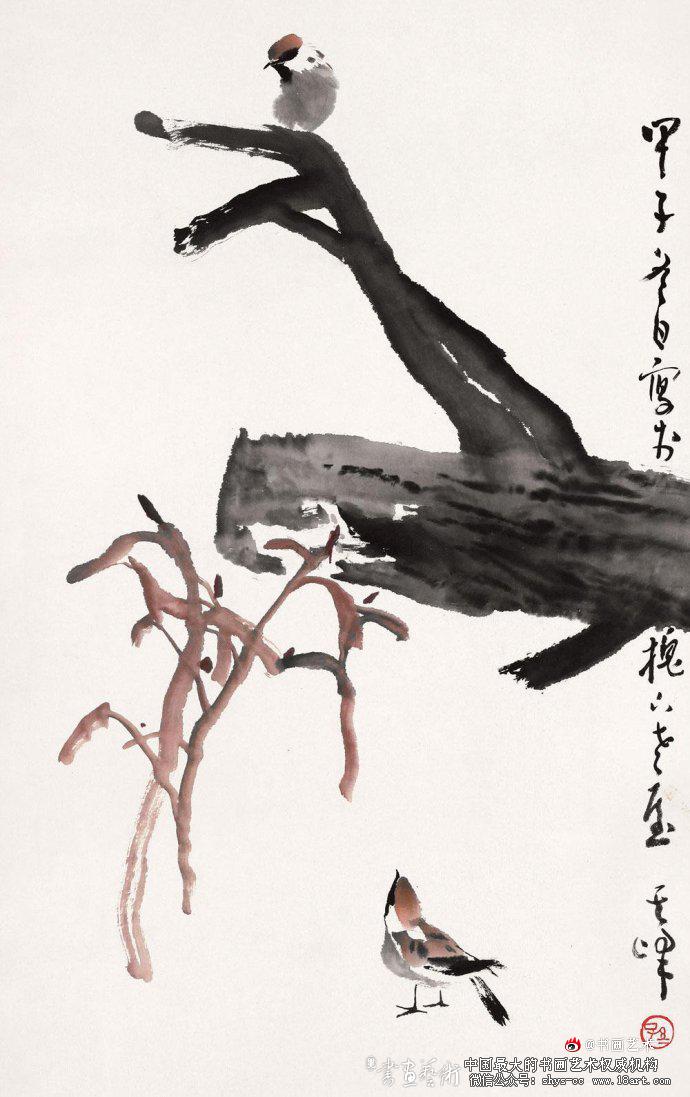 甲子冬日寫於
槐下老屋
其峰
@书画艺术
書畫藝術
中国最大的书画艺术权威机构
微信公众号: shys-cc www.18art.com